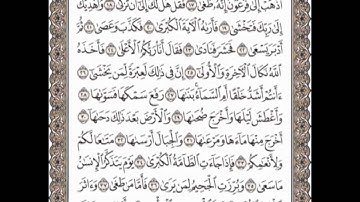 ٱذْهَبْ إِلَىٰ فِرْعَوْنَ إِنَّهُۥ طَغَىٰ ١٧ فَقُلْ هَل لَّكَ إِلَىٰٓ أَن تَزَكَّىٰ ١٨ وَأَهْدِيَكَ
إِلَىٰ رَبِّكَ فَتَخْشَىٰ ١٩ فَأَرَىٰهُ ٱلْءَايَةَ ٱلْكُبْرَىٰ ٢٠ فَكَذَّبَ وَعَصَىٰ ٢١ ثُمَّ
أَدْبَرَ يَسْعَىٰ ٢٢ فَحَشَرَ فَنَادَىٰ ٢٣ فَقَالَ أَنَا۠ رَبُّكُمُ ٱلْأَعْلَىٰ ٢٤ فَأَخَذَهُ
ٱللَّهُ نَكَالَ ٱلْءَاخِرَةِ وَٱلْأُولَىٰٓ ٢٥ إِنَّ فِى ذَٰلِكَ لَعِبْرَةً لِّمَن يَخْشَىٰٓ ٢٦
ءَأَنتُمْ أَشَدُّ خَلْقًا أَمِ ٱلسَّمَآءُ بَنَىٰهَا ٢٧ رَفَعَ سَمْكَهَا فَسَوَّىٰهَا ٢٨
وَأَغْطَشَ لَيْلَهَا وَأَخْرَجَ ضُحَىٰهَا ٢٩ وَٱلْأَرْضَ بَعْدَ ذَٰلِكَ دَحَىٰهَآ ٣٠
أَخْرَجَ مِنْهَا مَآءَهَا وَمَرْعَىٰهَا ٣١ وَٱلْجِبَالَ أَرْسَىٰهَا ٣٢ مَتَٰعًا لَّكُمْ
وَلِأَنْعَٰمِكُمْ ٣٣ فَإِذَا جَآءَتِ ٱلطَّآمَّةُ ٱلْكُبْرَىٰ ٣٤ يَوْمَ يَتَذَكَّرُ ٱلْإِنسَٰنُ
مَا سَعَىٰ ٣٥ وَبُرِّزَتِ ٱلْجَحِيمُ لِمَن يَرَىٰ ٣٦ فَأَمَّا مَن طَغَىٰ ٣٧ وَءَاثَرَ